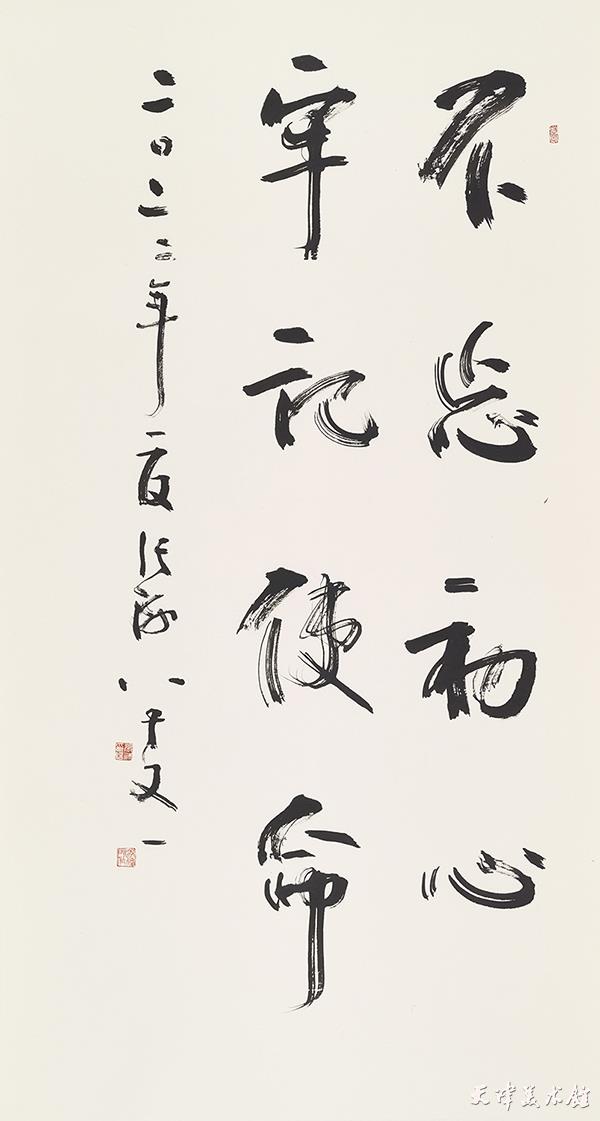 不忘初心
牢记使命
二〇二二年夏张海八十又一
天津美术馆